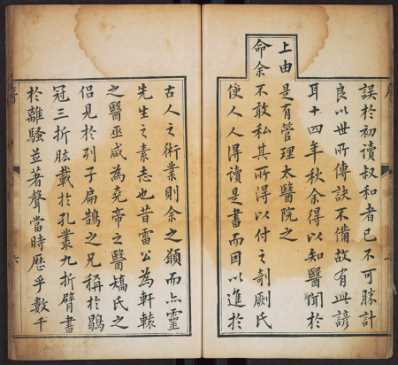 誤於初讀叔和者已不可勝計
良以世所傳訣不備故有此諺
耳十四年秋余得以知醫聞於
上由是有管理太醫院之
命余不敢私其所得以付之剞劂氏
使人人得讀是書而因以進於
古人之術業則余之願而亦靈
先生之素志也昔雷公為軒轅
之醫巫咸為堯帝之醫矯氏之
侶見於列子扁鵲之兄稱於鶡
冠三折肱載於孔叢九折臂書
於離騷並著聲當時歷乎數千